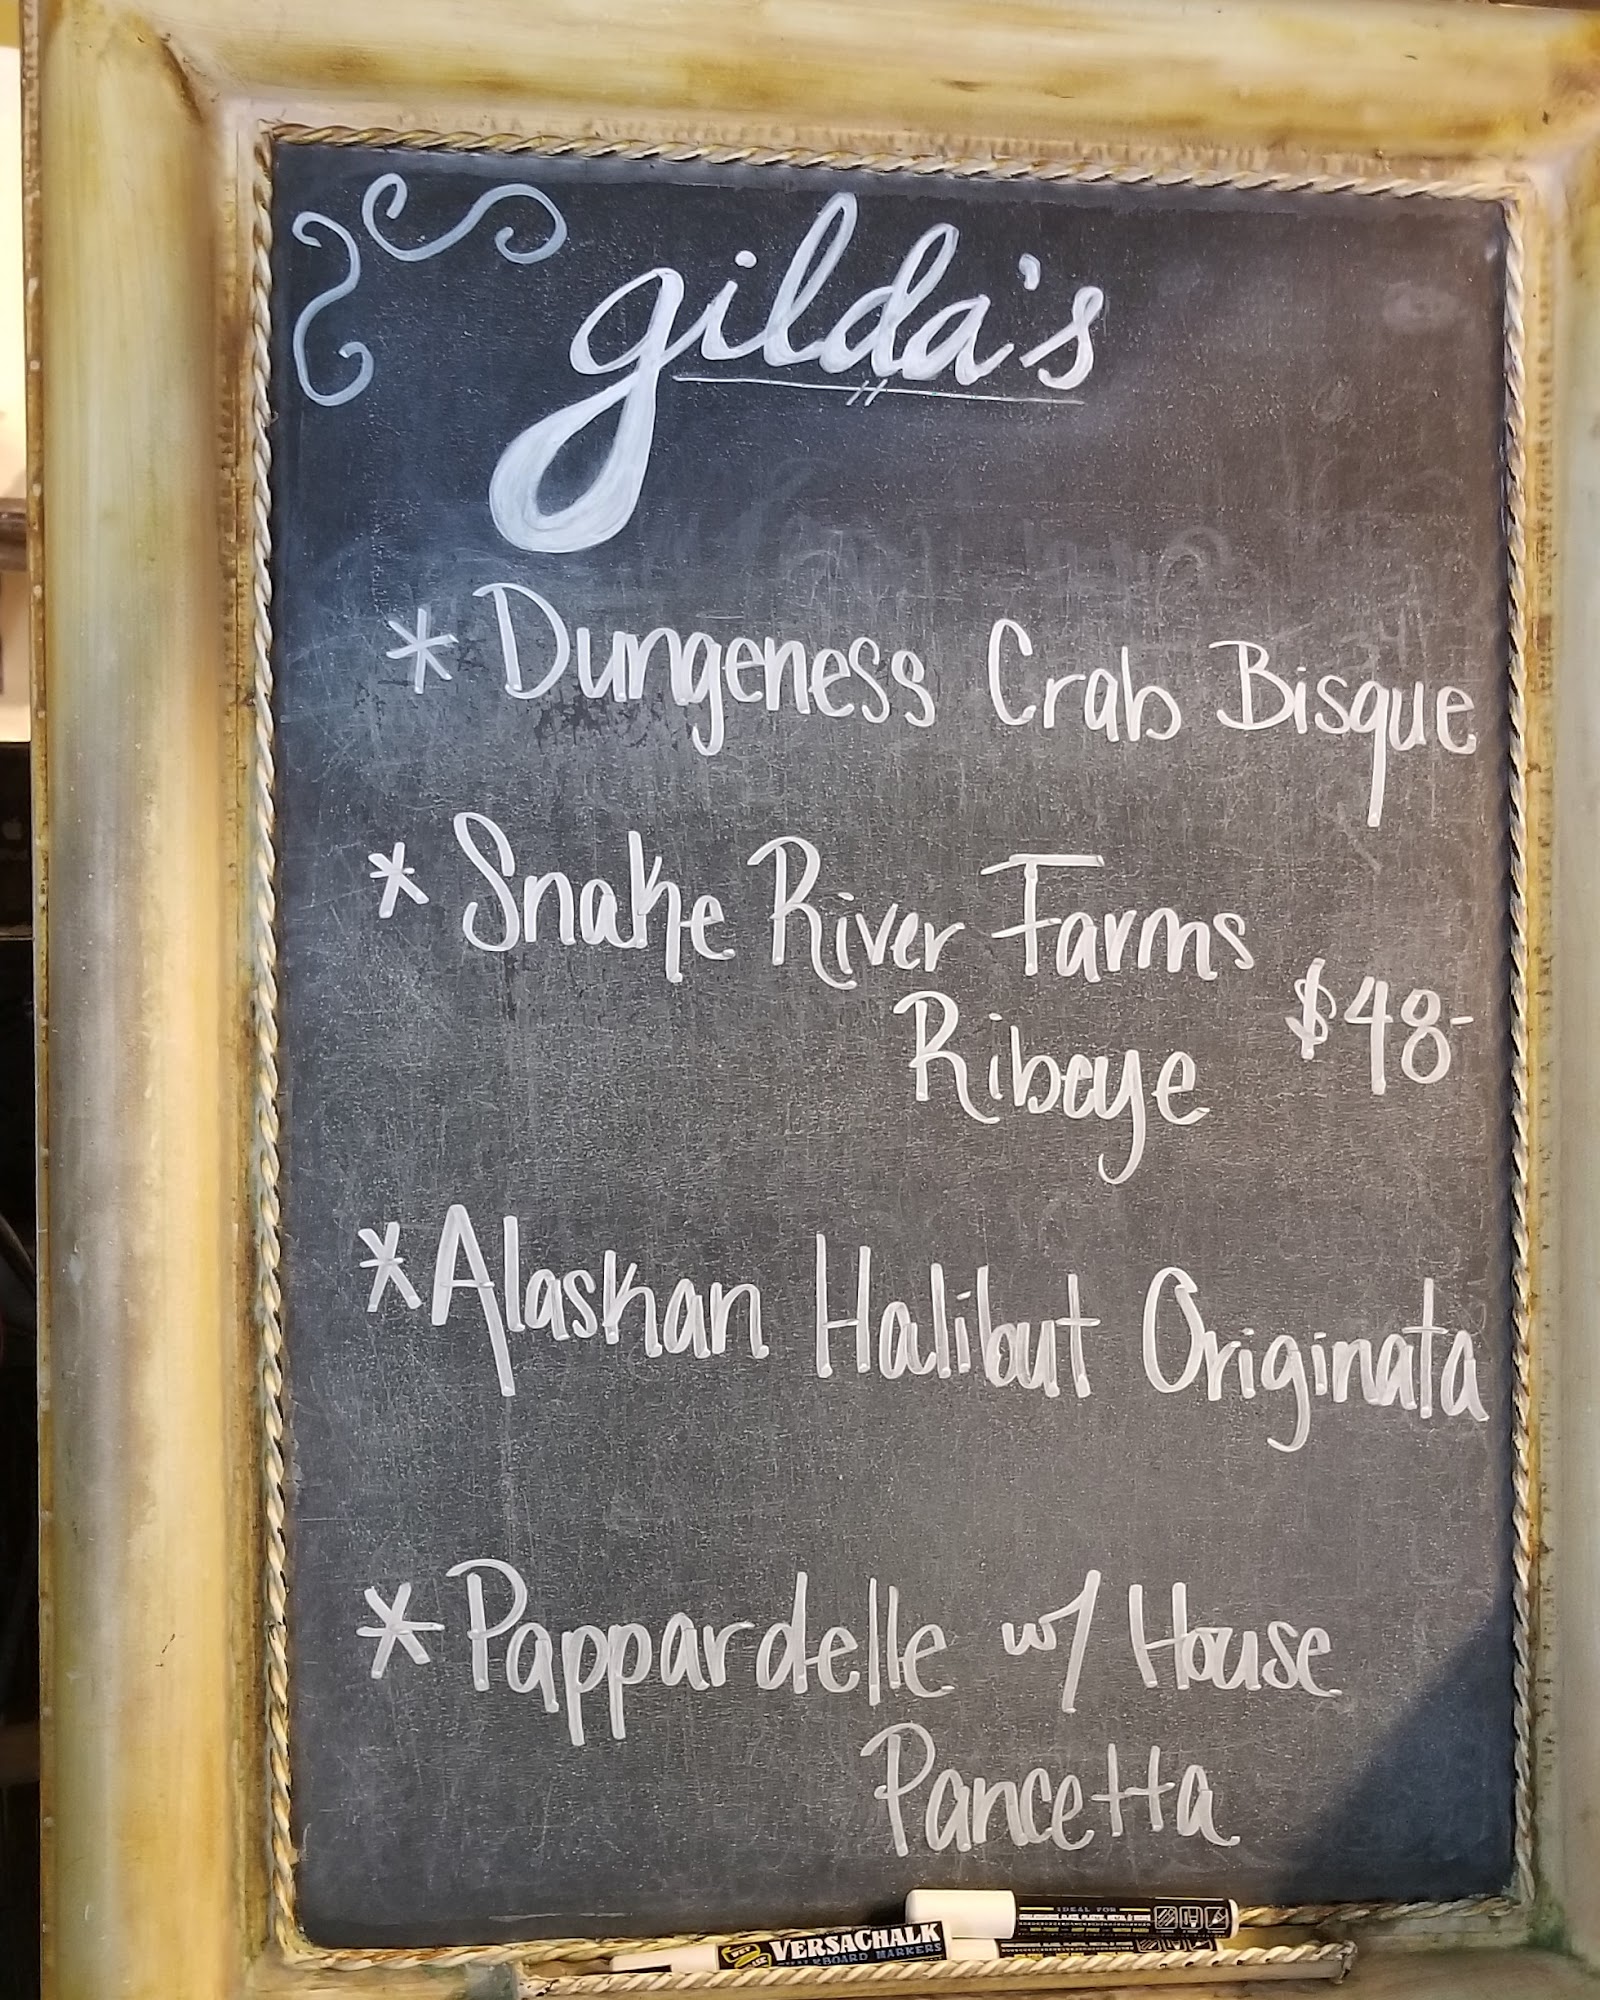 gilda's
* Dungeness Crab Bisque
* Snake River Farms
Ribeye $48-
* Alaskan Halibut Originata
* Pappardelle w/ House
Pancetta
IDEAL FOR
VERSACHALK
BOARD MARKERS